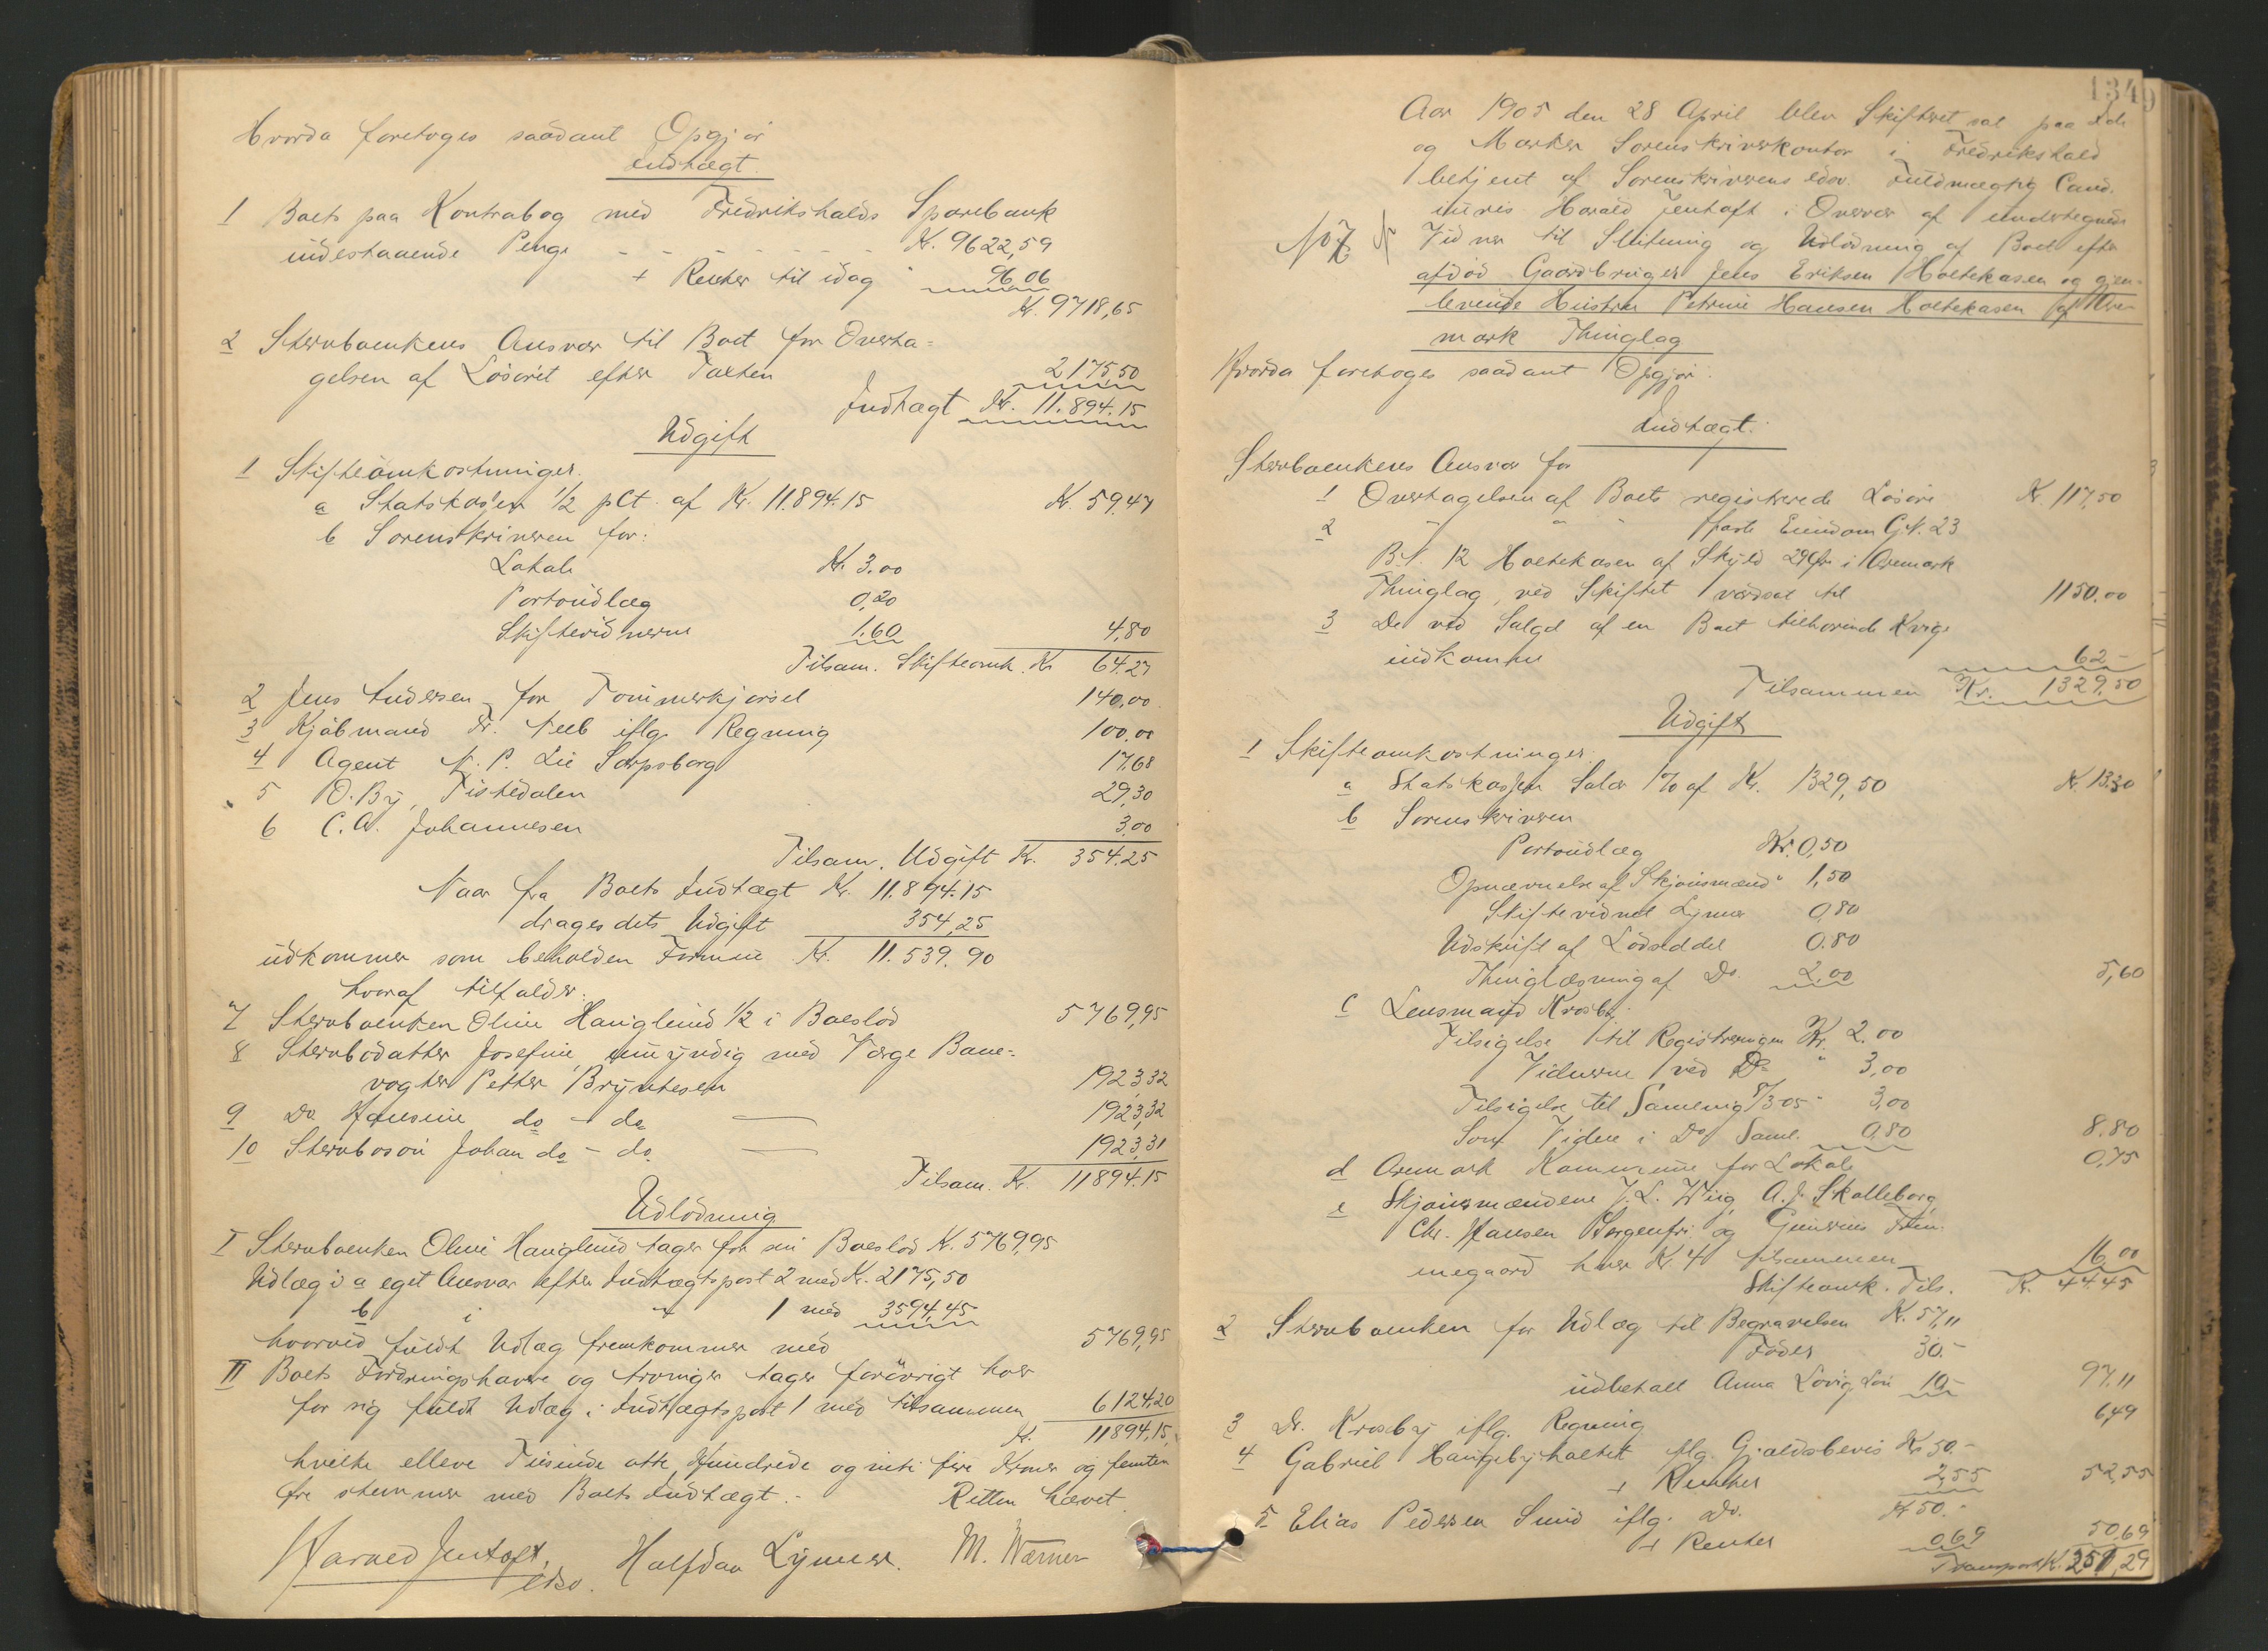 Hvorda foretoges saadant Opgjør
Indtægt
1 Boets paa Kontrabog med Fredrikshalds Sparebank
indestaaende Penge - - - - - - - Kr. 9622,59
+ Renter til idag " 96.06
Kr. 9718,65
2 Stervboenkens Ansvar til Boet for Overta=
gelsen af Løsøret efter Taxten 2175,50
Indtægt Kr. 11.894.15
Udgift
1 Skifteomkostninger.
a Statskassen 1/2 pCt. af Kr. 11.894.15 Kr. 59.47
b Sorenskriveren for:
Lokale Kr. 3.00
Portoudlæg 0,20
Skiftevidnerne 1.60 4,80
Tilsam. Skifteomk. Kr 64.27
2 Jens Andersen for Tømmerkjørsel 140,00
3 Kjøbmand Fr. Neeb iflg. Regning 100.00
4 Agent N. P. Lie Sarpsborg 17.68
5 O. By, Tistedalen 29,30
6 C. A. Johannesen 3.00
Tilsam. Udgift Kr. 354.25
Naar fra Boets Indtægt Kr. 11.894.15
drages dets Udgift 354,25
udkommer som beholden Formue Kr. 11.539.90
hvoraf tilfalder:
7 Stervboenken Oline Hauglund 1/2 i Boeslod 5769,95
8 Stervbodatter Josefine, umyndig med Værge Bane=
vogter Petter Bryntesen 1923,32
9 Do. Hansine do - do 1923,32
10 Stervbosøn Johan do - do. 1923,31
Tilsam. Kr. 11894.15
Udlodning
I Stervboenken Oline Hauglund tager for sin Boeslod Kr. 5769,95
Udlæg i a eget Ansvar efter Indtægtspost 2 med Kr. 2175,50
b i 1 med 3594,45
hvorved fuldt Udlæg fremkommer med 5769,95
II Boets Fordringshavere og Arvinger tager forøvrigt hver
for sig fuldt Udlæg i Indtægtspost 1 med tilsammen 6124,20
Kr. 11894,15,
hvilke elleve Tusinde otte Hundrede og niti fire Kroner og femten
Øre stemmer med Boets Indtægt. - Retten hævet.
Harald Jentoft, edsv. Halfdan Lymer. M. Wærner
134
Aar 1905 den 28 April blev Skifteret sat paa Idde
og Marker Sorenskriverkontor i Fredrikshald
betjent af Sorenskriverens edsv. Fuldmægtig Cand.
iuris. Harald Jentoft i Overvær af undertegnede
No 7 Vidner til Slutning og Udlodning af Boet efter
afdød Gaardbruger Jens Eriksen Holtekasen og gjen-
levende Hustru Petrine Hansen Holtekasen af Are-
mark Thinglag
Hvorda foretoges saadant Opgjør:
Indtægt.
Stervboenkens Ansvar for
1 Overtagelsen af Boets registrerede Løsøre Kr. 117,50
2 " " " faste Eiendom G.N. 23
B.N. 12 Holtekasen af Skyld 29 Øre i Aremark
Thinglag, ved Skiftet værdsat til 1150.00
3 De ved Salget af en Boet tilhørende Kvige
indkomne 62 -
Tilsammen Kr. 1329,50
Udgift
1 Skifteomkostninger.
a Statskassen Salær 1 % af Kr. 1329,50 Kr. 13.30
b Sorenskriveren
Portoudlæg Kr. 0,50
Opnævnelse af Skjønsmænd " 1,50
Skiftevidnet Lymer 0,80
Udskrift af Lodseddel 0.80
Thinglæsning af Do. 2,00 5,60
c Lensmand Krosby.
Tilsigelse til Registreringen Kr. 2.00
Vidnerne ved Do " 3,00
Tilsigelse til Samling 8/3 05 " 3,00
Som Vidne i Do Saml. 0,80 8.80
d Aremark Kommune for Lokale 0,75
e Skjønsmændene J. L. Wiig, A. J. Skolleborg,
Chr. Hansen Sorgenfri og Gunerius Tem-
megaard hver Kr. 4 tilsammen 16,00
Skifteomk. Tils. Kr. 44.45
2 Stervboenken for Udlæg til Begravelsen Kr. 57,11
Foder 30.-
udbetalt Anna Lovig Løn 10- 97,11
3 Dr. Krosby iflg. Regning 6,49
4 Gabriel Haugebyholtet iflg. Gjældsbevis Kr 50.-
+ Renter 2,55 52,55
5 Elias Pedersen Smid iflg. Do. Kr 50.-
+ Renter 0.69 50,69
Transport Kr. 251,29